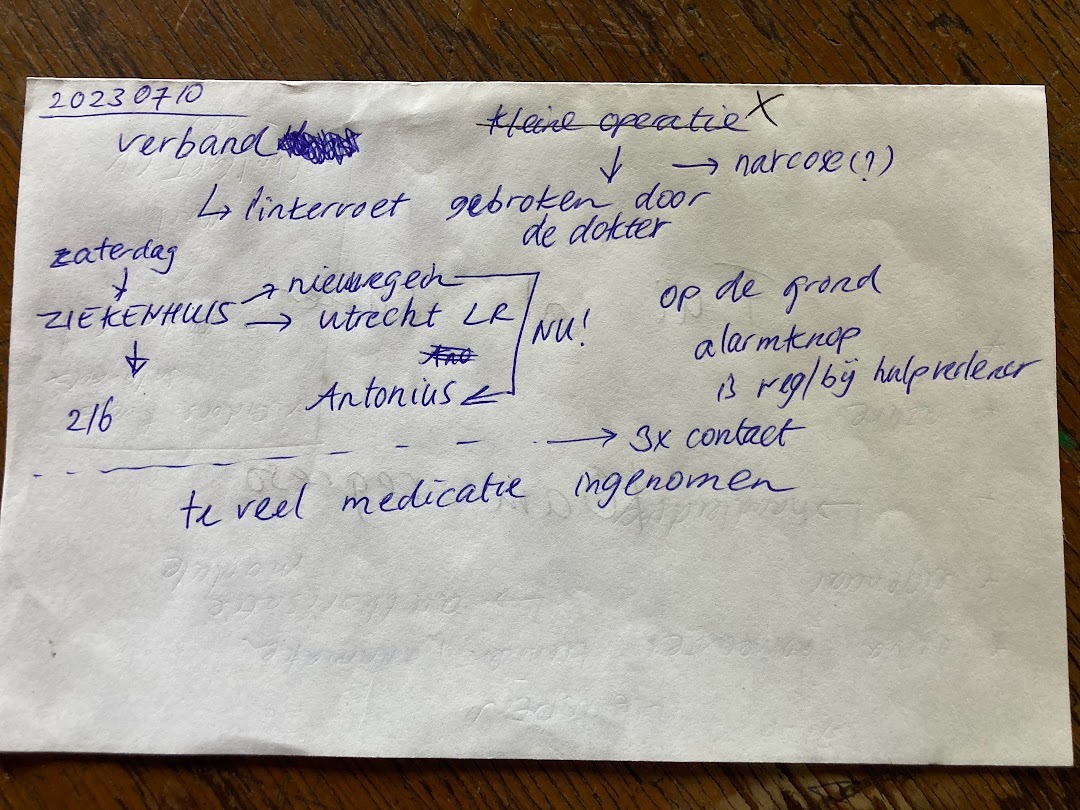 20230710
kleine operatie X
verband
↓ → narcose(?)
↳ linkervoet gebroken door
de dokter
zaterdag
↓
ZIEKENHUIS → nieuwegein
→ utrecht LR
NU!
Antonius ←
↓
2/6
op de grond
alarmknop
is weg/bij hulpverlener
- - - - → 3x contact
te veel medicatie ingenomen